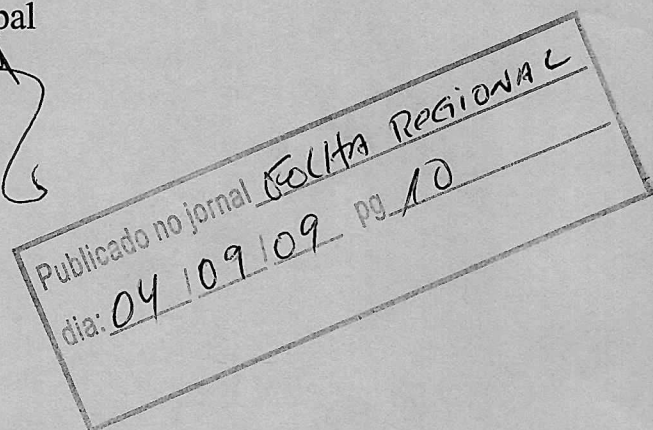 pal
Publicado no jornal FOLHA REGIONAL
dia: 04 / 09 / 09 pg 10